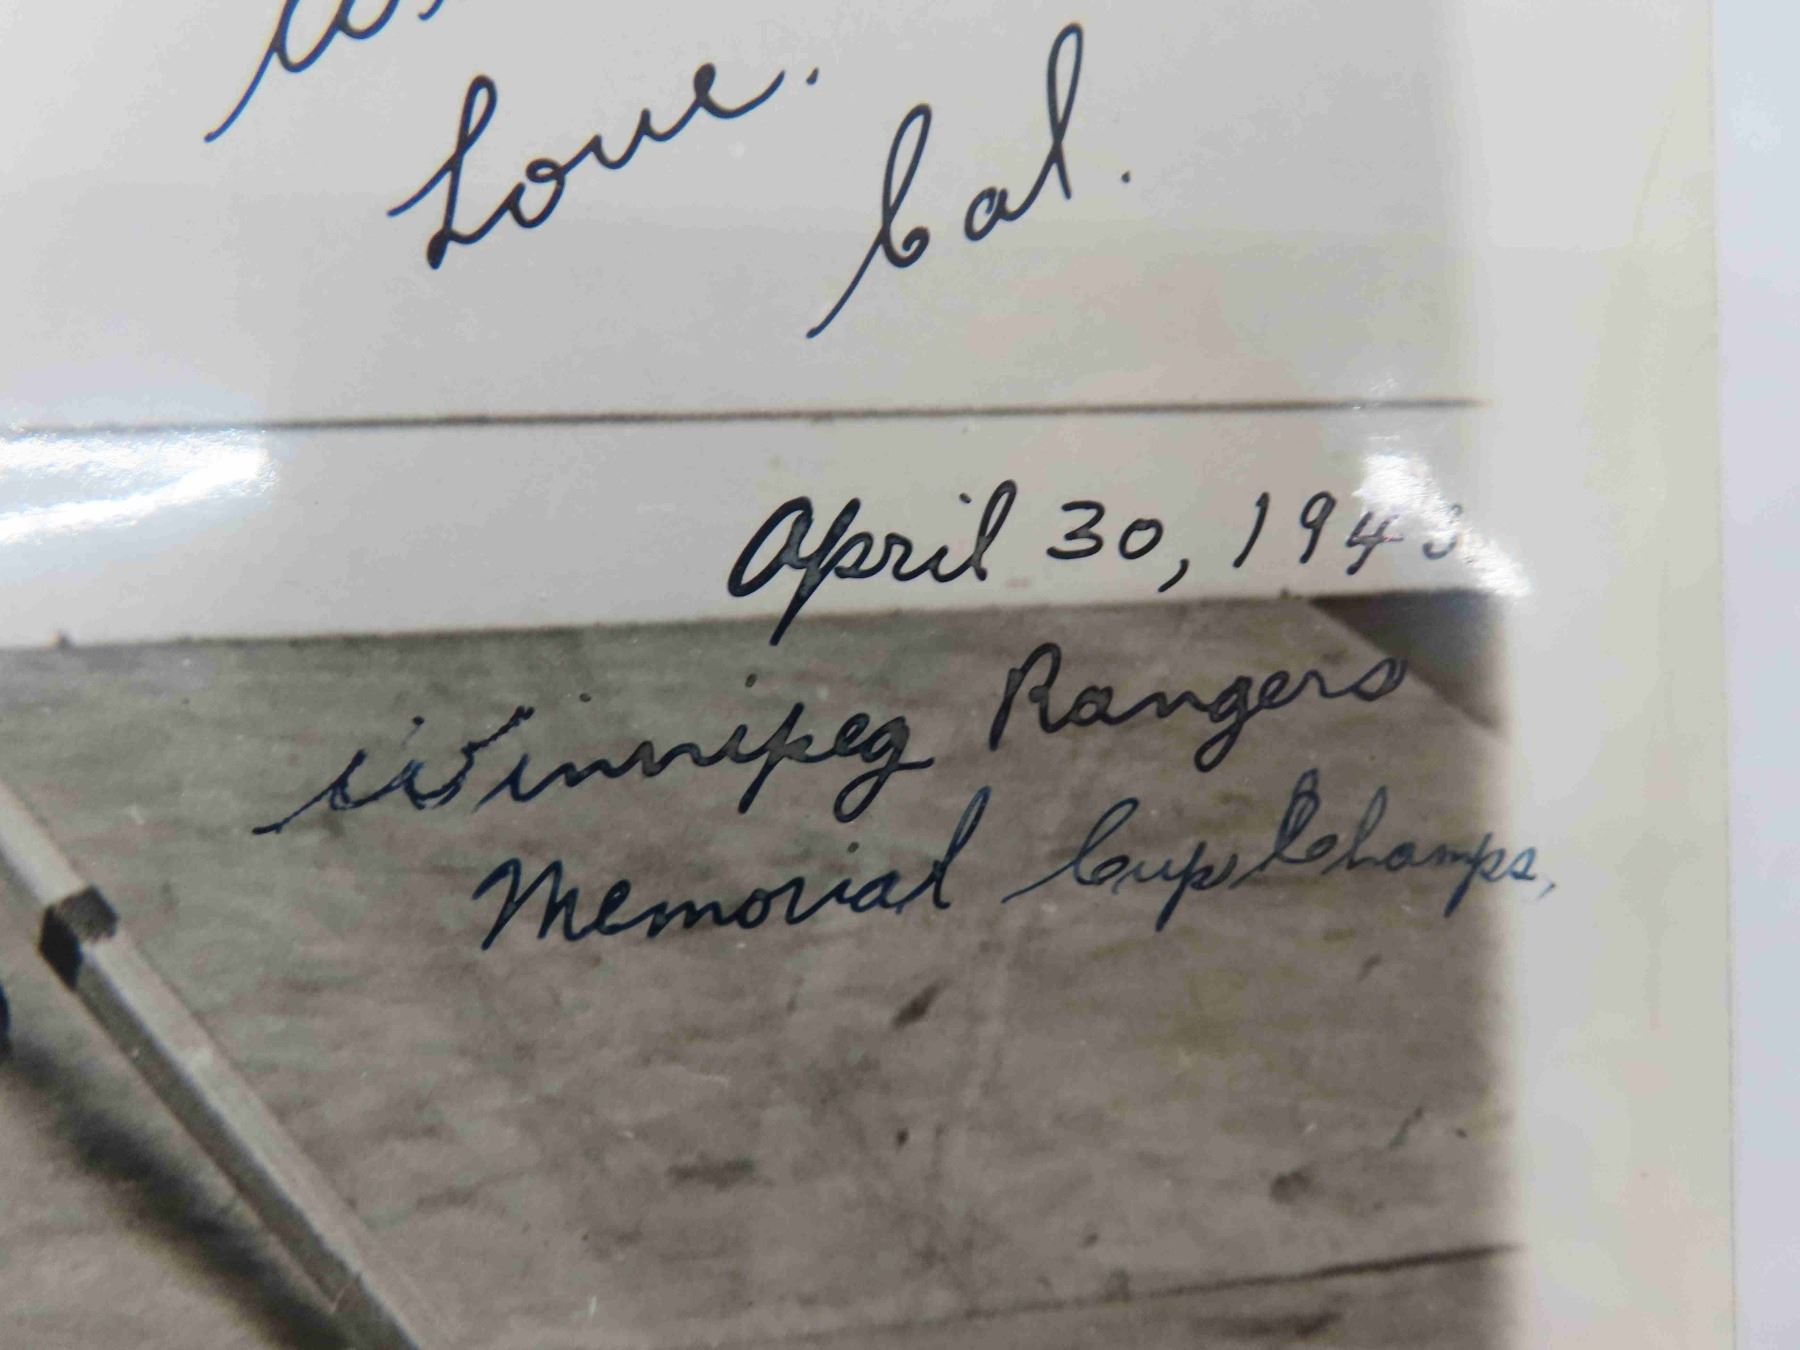 Love.
Cal.
April 30, 1943
Winnipeg Rangers
Memorial Cup Champs,